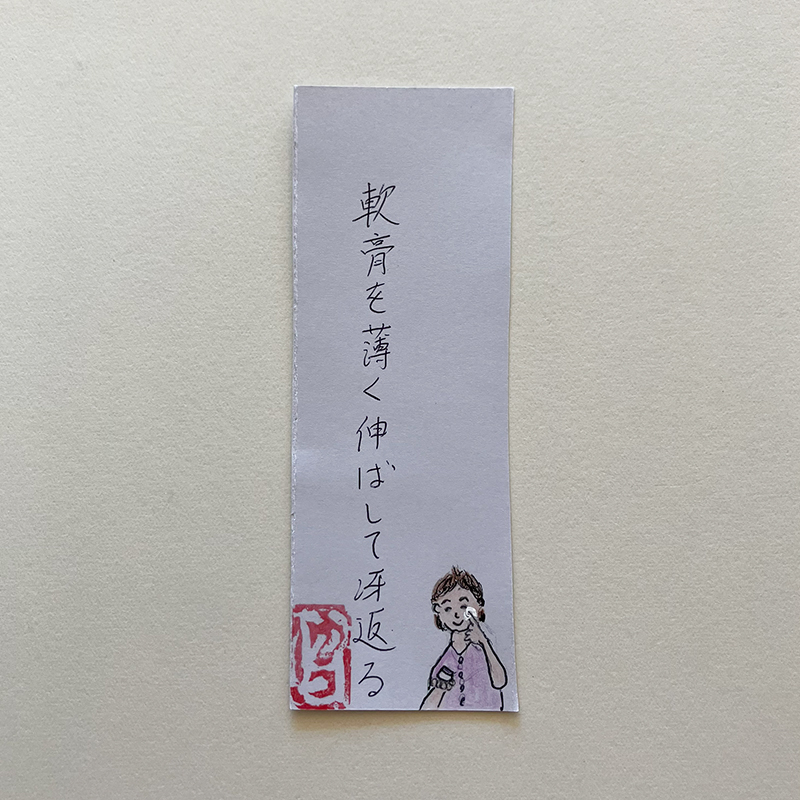 軟膏を薄く伸ばして冴返る